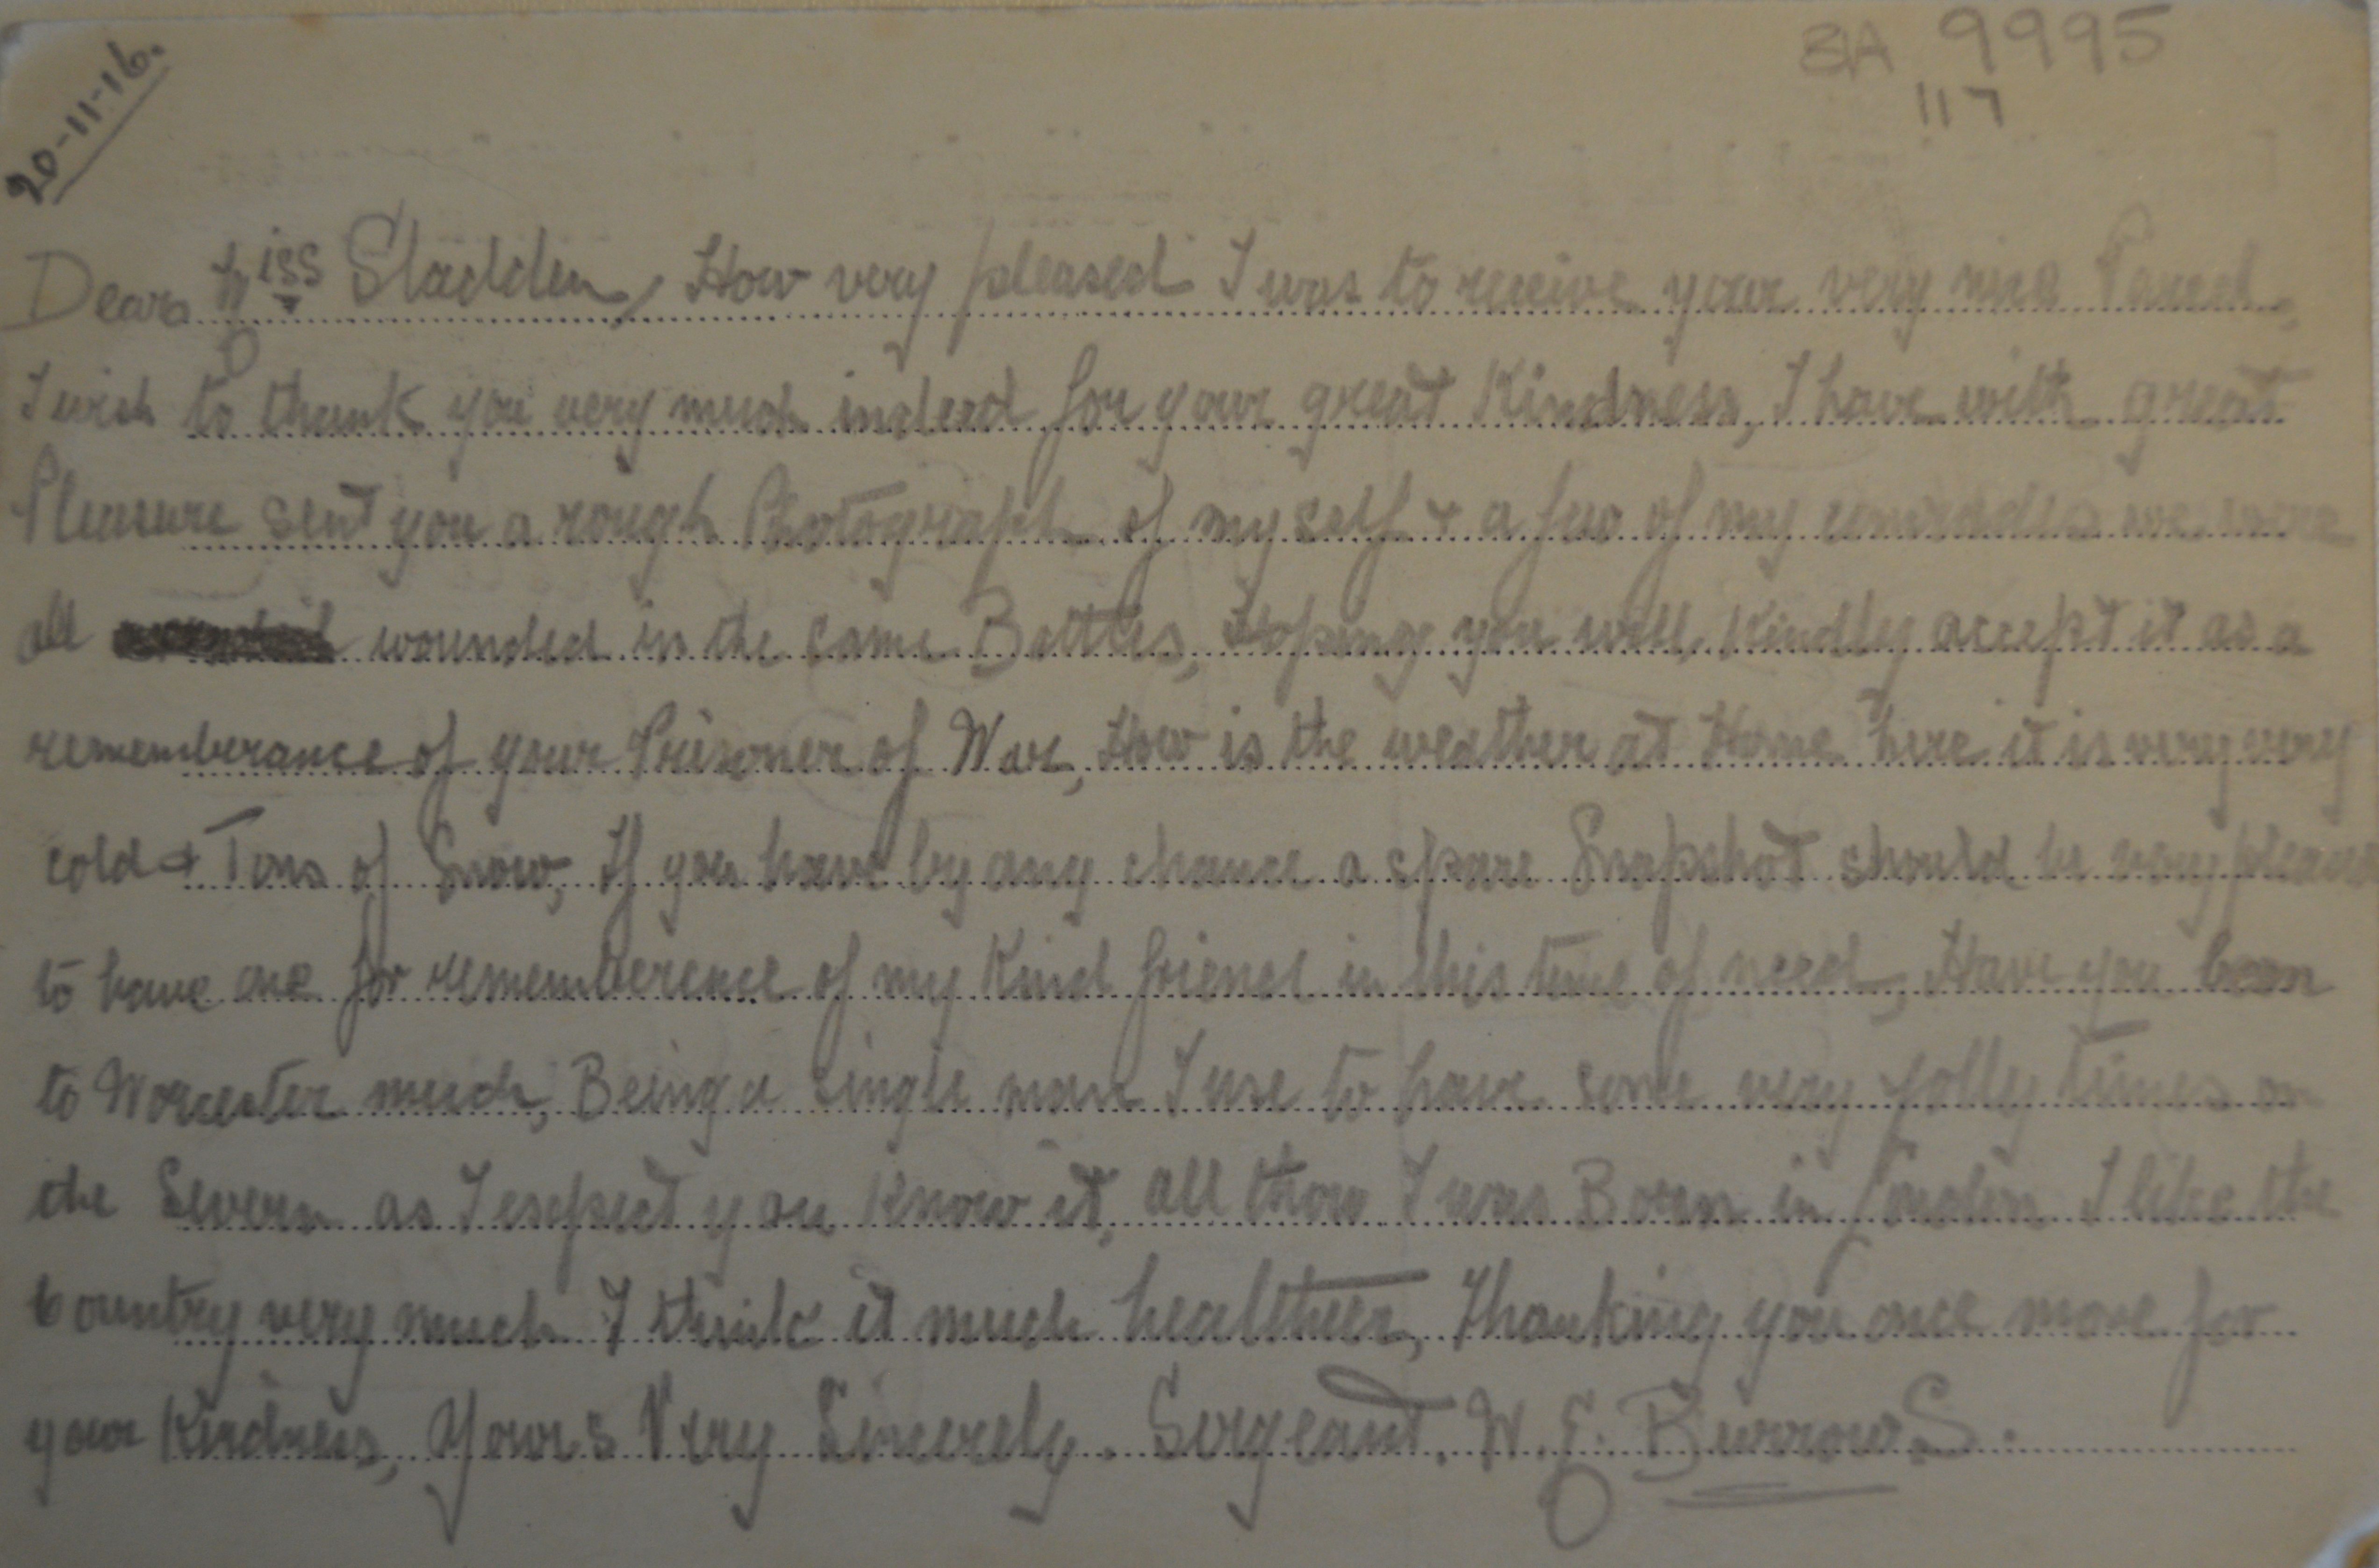 20-11-16.
BA 9995
117
Dear Miss Sladden, How very pleased I was to receive your very nice Parcel,
I wish to thank you very much indeed for your great Kindness, I have with great
Pleasure sent you a rough Photograph of myself & a few of my comrades we were
all wounded in the same Battles, Hoping you will, Kindly accept it as a
rememberance of your Prisoner of War, How is the weather at Home here it is very very
cold & Tons of Snow, If you have by any chance a spare Snapshot should be very pleased
to have one for rememberence of my Kind friend in this time of need, Have you been
to Worcester much, Being a single man I use to have some very jolly times on
the Severn as I expect you Know it, all thow I was Born in London I like the
Country very much I think it much healthier, Thanking you once more for
your Kindness, Yours Very Sincerely. Sergeant. W. E. Burrows.